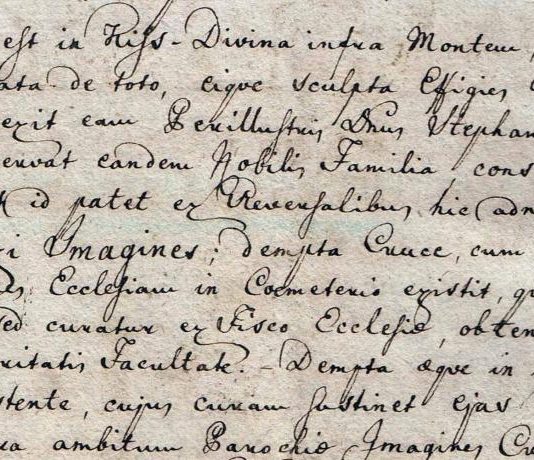 est in Kiss-Divina infra Montem,
ata de toto, eiqve sculpta Effigies
exit eam Perillustris Dnus Stephan
servat eandem Nobilis Familia, cons
id patet ex Reversalibus, hic adn
i Imagines; dempta Cruce, cum
Ecclesiam in Coemeterio existit, qu
sed curatur ex Fisco Ecclesiæ, obten
ritatis Facultate. - Dempta æqve in
stente, cujus curam sustinet ejas
ra ambitum Parochiæ Imagines Cr